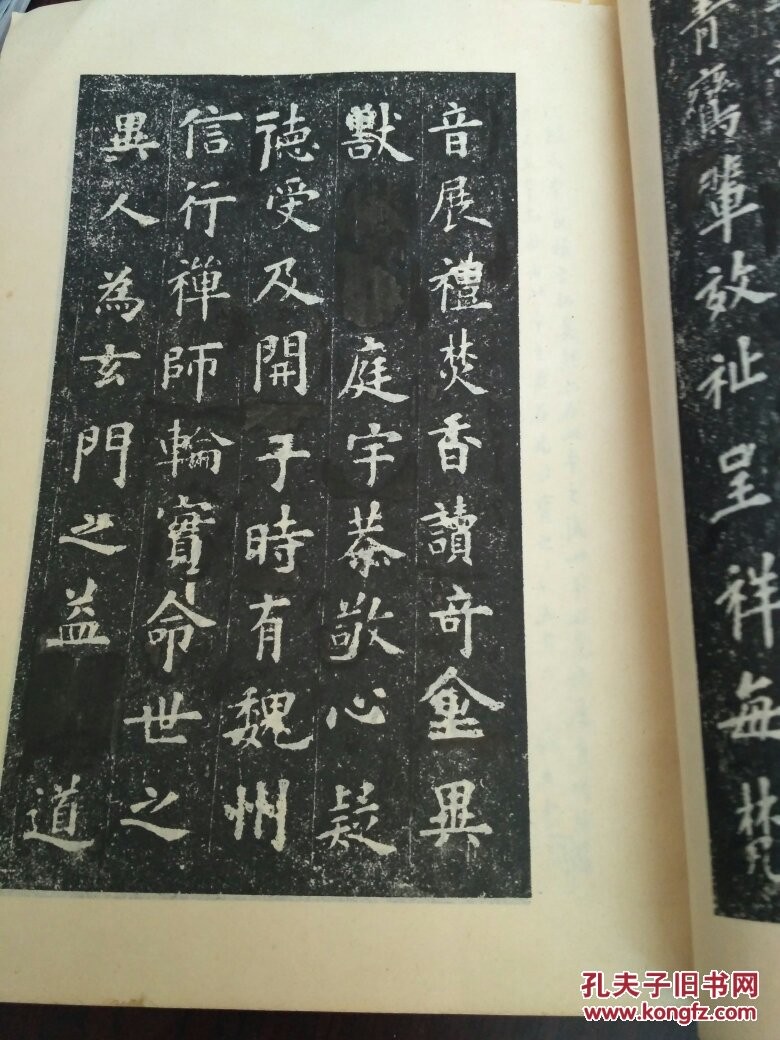 青輩放祉呈祥每梵
音展禮焚香讀奇禽異
獸庭宇恭敬心疑
德受及開于時有魏州
信行禪師輪實命世之
異人為玄門之益道
孔夫子旧书网
www.kongfz.com